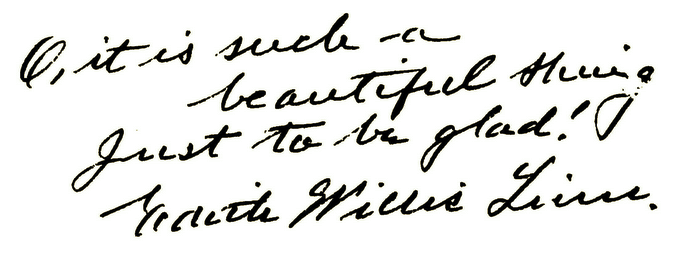 O, it is such a
beautiful thing
Just to be glad!
Edith Willis Linn.